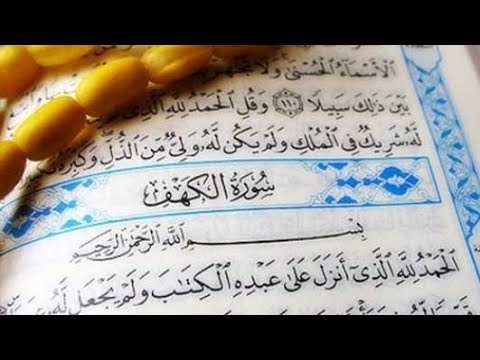 الْأَسْمَاءُ الْحُسْنَىٰ وَلَا تَجْهَرْ
بَيْنَ ذَٰلِكَ سَبِيلًا ﴿١١٠﴾ وَقُلِ الْحَمْدُ لِلَّهِ الَّذِي
لَّهُ شَرِيكٌ فِي الْمُلْكِ وَلَمْ يَكُن لَّهُ وَلِيٌّ مِّنَ الذُّلِّ وَكَبِّرْهُ
سُورَةُ الْكَهْفِ
بِسْمِ اللَّهِ الرَّحْمَٰنِ الرَّحِيمِ
الْحَمْدُ لِلَّهِ الَّذِي أَنزَلَ عَلَىٰ عَبْدِهِ الْكِتَابَ وَلَمْ يَجْعَل لَّهُ